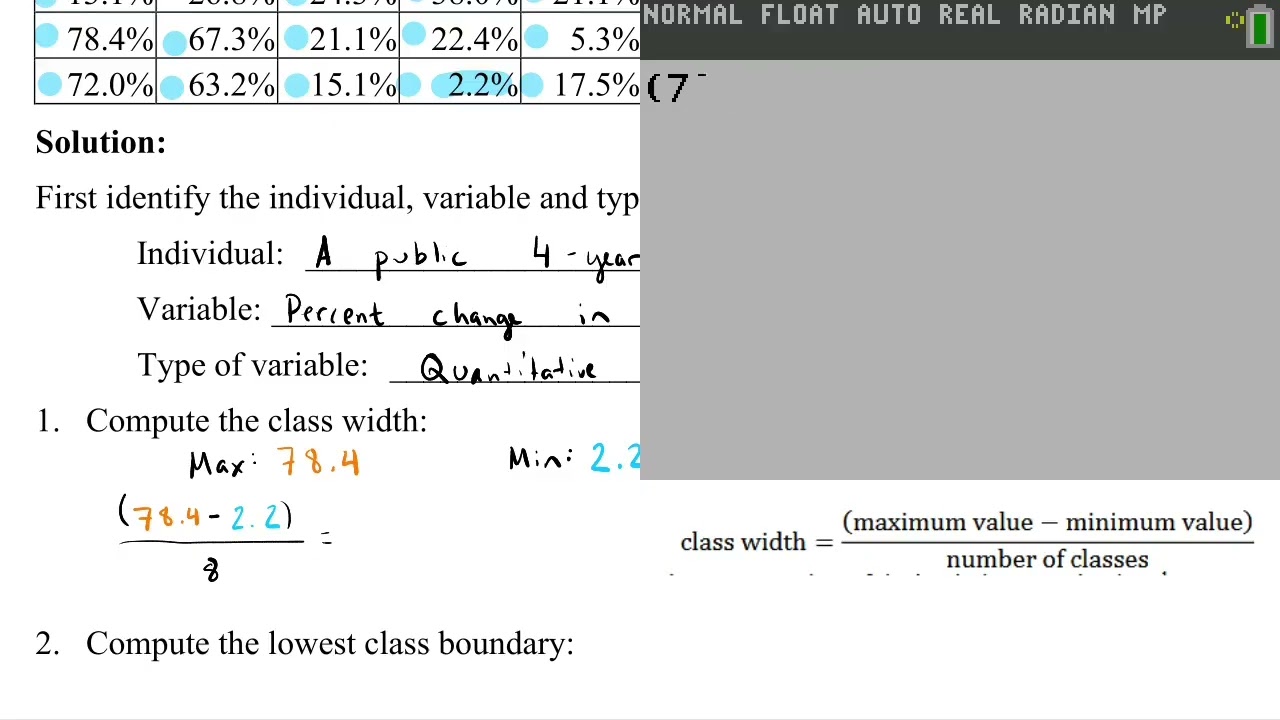 78.4% 67.3% 21.1% 22.4% 5.3%
72.0% 63.2% 15.1% 2.2% 17.5%
Solution:
First identify the individual, variable and typ
Individual: A public 4-year
Variable: Percent change in
Type of variable: Quantitative
1. Compute the class width:
Max: 78.4 Min: 2.2
(78.4 - 2.2)
=
8
2. Compute the lowest class boundary:
NORMAL FLOAT AUTO REAL RADIAN MP
(7
class width = (maximum value − minimum value)
number of classes